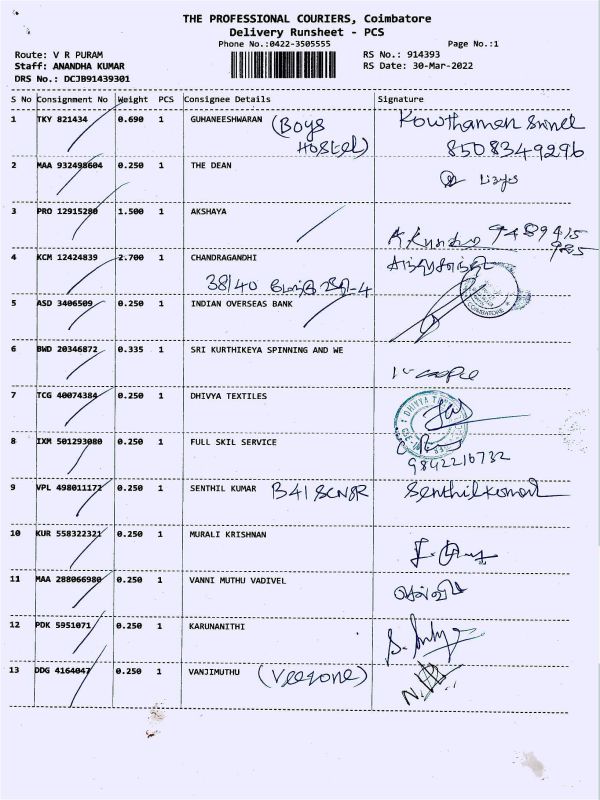 THE PROFESSIONAL COURIERS, Coimbatore
Delivery Runsheet - PCS
Phone No.:0422-3505555
Page No.:1
Route: V R PURAM
RS No.: 914393
Staff: ANANDHA KUMAR
RS Date: 30-Mar-2022
DRS No.: DCJB91439301
S No Consignment No Weight PCS Consignee Details Signature
1 TKY 821434 0.690 1 GUHANEESHWARAN (BOYS HOSTEL)
8508349296
2 MAA 932498604 0.250 1 THE DEAN
3 PRO 12915280 1.500 1 AKSHAYA
9489415
985
4 KCM 12424839 2.700 1 CHANDRAGANDHI
38/40
5 ASD 3406509 0.250 1 INDIAN OVERSEAS BANK
COIMBATORE
6 BWD 20346872 0.335 1 SRI KURTHIKEYA SPINNING AND WE
7 TCG 40074384 0.250 1 DHIVYA TEXTILES
DHIVYA
8 IXM 501293080 0.250 1 FULL SKIL SERVICE
9842216732
9 VPL 498011172 0.250 1 SENTHIL KUMAR Senthilkumar
10 KUR 558322321 0.250 1 MURALI KRISHNAN
11 MAA 288066980 0.250 1 VANNI MUTHU VADIVEL
12 PDK 5951071 0.250 1 KARUNANITHI
13 DDG 4164047 0.250 1 VANJIMUTHU